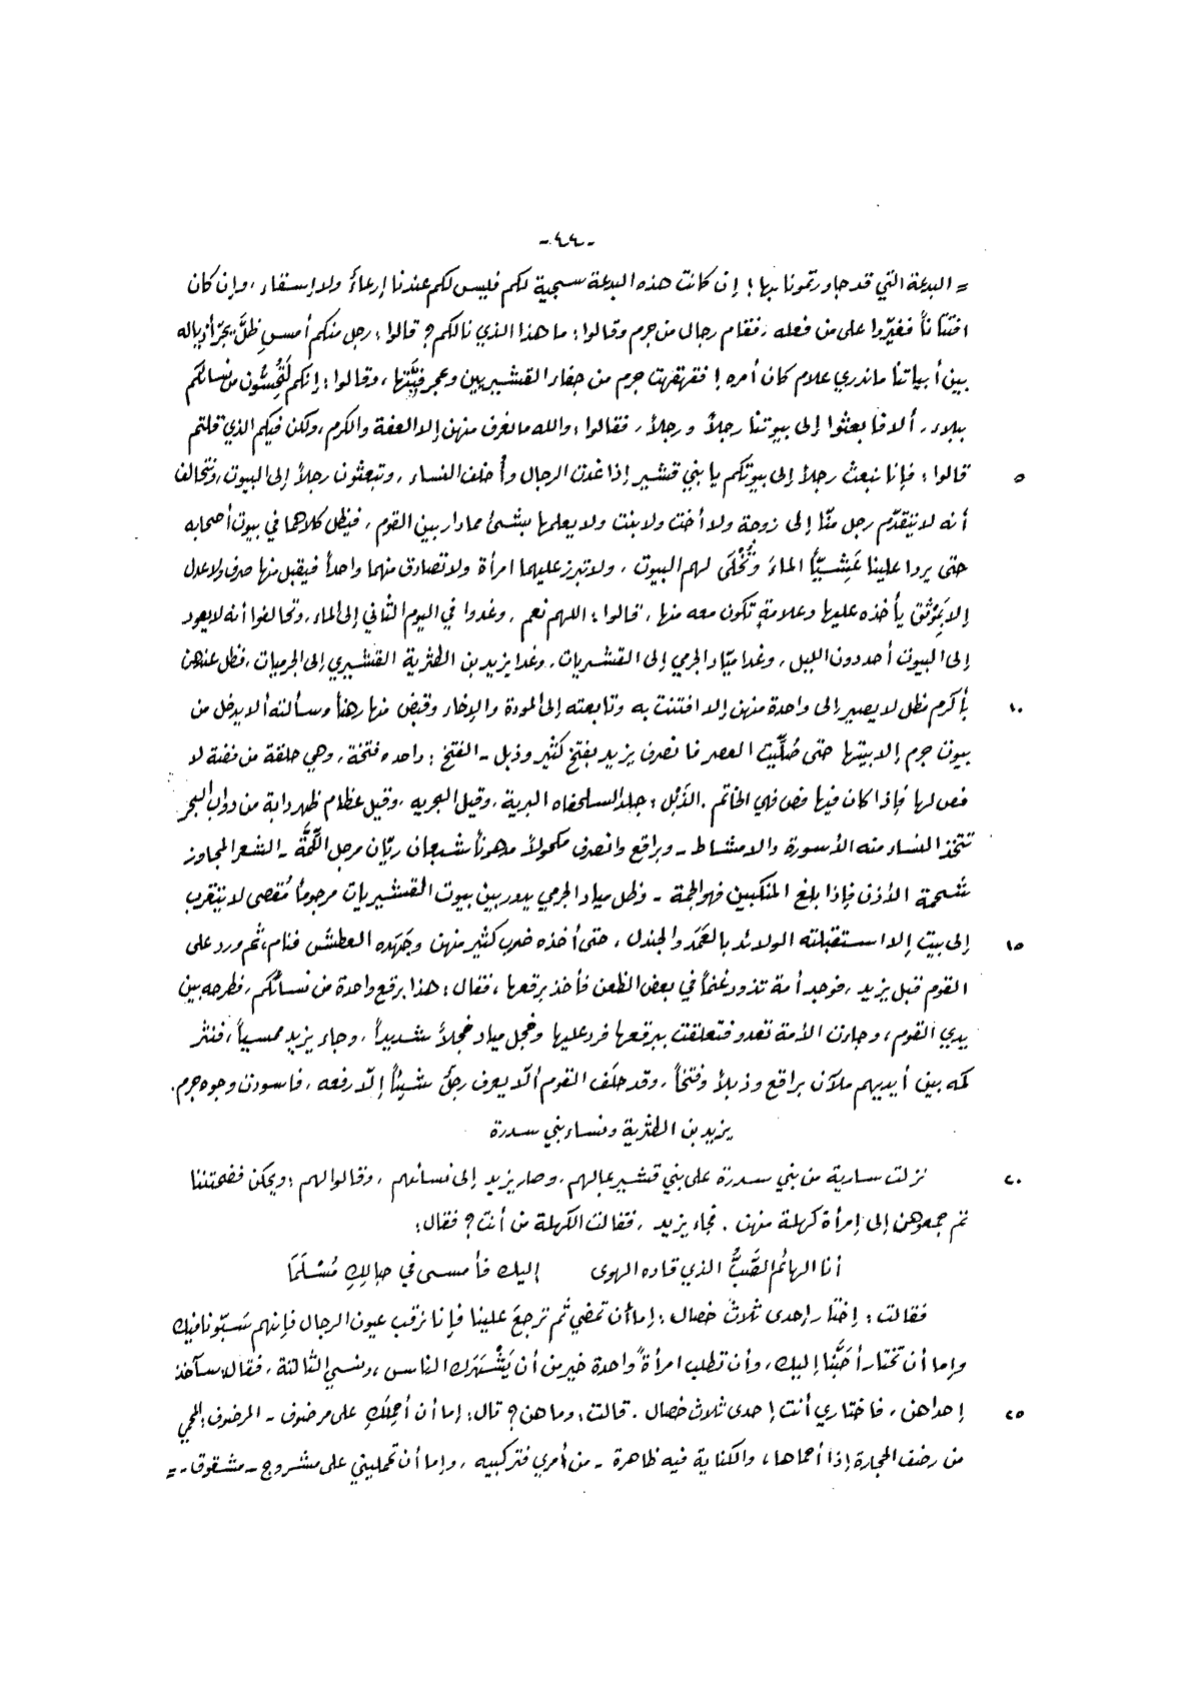 -٤٤-
= البدعة التي قد جاورتمونا بها؛ إن كانت هذه البدعة سجية لكم فليس لكم عندنا إرعاءٌ ولا إستقاء، وإن كان
افتتاناً فغيّروا على من فعله، فقام رجال من جرم وقالوا: ما هذا الذي نالكم؟ قالوا: رجل منكم أمسِ ظلَّ يجرّ أذياله
بين أبياتنا ماندري علام كان أمره! فقهقهت جرم من جفاء القشيريين وعجرفيَّتها، وقالوا: إنكم لَتُحِسُّون من نسائكم
ببلاء، ألا فابعثوا إلى بيوتنا رجلاً ورجلاً، فقالوا: والله مانعرف منهن إلا العفة والكرم، ولكن فيكم الذي قلتم
٥ قالوا: فإنا نبعث رجلاً إلى بيوتكم يا بني قشير إذا غدت الرجال وأخلف النساء، وتبعثون رجلاً إلى البيوت، ونتحالف
أنه لا يتقدّم رجل منّا إلى زوجة ولا أخت ولا بنت ولا يعلمها بشئ مما دار بين القوم، فيظل كلاهما في بيوت أصحابه
حتى يردا علينا عَشِيّاً الماءَ وتُخْلَى لهم البيوت، ولا تبرز عليهما امرأة ولا تصادق منهما واحداً فيقبل منها صرف ولا عدل
إلا بمَوْثق يأخذه عليها وعلامةٍ تكون معه منها، قالوا: اللهم نعم، وغدوا في اليوم الثاني إلى الماء، وتحالفوا أنه لا يعود
إلى البيوت أحد دون الليل، وغدا ميّاد الجرمي إلى القشيريات، وغدا يزيد بن الطثرية القشيري إلى الجرميات، فظل عندهن
١٠ بأكرم مظل لا يصير إلى واحدة منهن إلا افتتنت به وتابعته إلى المودة والإخاء وقبض منها رهناً وسألته ألا يدخل من
بيوت جرم إلا بيتها حتى صُلِّيَت العصر فانصرف يزيد بفتخ كثير وذبل - الفتخ: واحده فتخة، وهي حلقة من فضة لا
فص لها فإذا كان فيها فص فهي الخاتم. الذَّبل: جلد السلحفاه البرية، وقيل البحريه، وقيل عظام ظهر دابة من دواب البحر
تتخذ النساء منه الأسورة والامشاط - وبراقع وانصرف مكحولاً مدهوناً شبعان ريّان مرجل اللِّمَّة - الشعر المجاوز
شحمة الأذن فإذا بلغ المنكبين فهو الجمة - وظل مياد الجرمي يدور بين بيوت القشيريات مرجوماً مُقصى لا يتقرب
١٥ إلى بيت إلا استقبلته الولائد بالعَمَد والجندل، حتى أخذه ضرب كثير منهن وجَهَده العطش فنام، ثم ورد على
القوم قبل يزيد، فوجد أمة تذود غنماً في بعض الظعن فأخذ برقعها، فقال: هذا برقع واحدة من نسائكم، فطرحه بين
يدي القوم، وجاءت الأمة تعدو فتعلقت ببرقعها فرد عليها وخجل مياد خجلاً شديداً، وجاء يزيد ممسياً، فنثر
كمه بين أيديهم ملآن براقع وذبلاً وفتخاً، وقد حلف القوم ألّا يعرف رجلٌ شيئاً إلّا رفعه، فاسودت وجوه جرم.
يزيد بن الطثرية ونساء بني سدرة
٢٠ نزلت سارية من بني سدرة على بني قشير عالهم، وصار يزيد إلى نسائهم، وقالوا لهم: ويحكن فضحتننا
ثم جمعوهن إلى إمرأة كهلة منهن. فجاء يزيد، فقالت الكهلة من أنت؟ فقال:
أنا الهائم الصَّبُّ الذي قاده الهوى إليك فأمسى في حبالِكِ مُسْلَمَا
فقالت: إختر إحدى ثلاث خصال: إما أن تمضي ثم ترجعَ علينا فإنا نرقب عيون الرجال فإنهم سَبّونا فيك
وإما أن تختار أحَبَّنا إليك، وأن تطلب امرأةً واحدة خير من أن يَشْتهرَك الناس، ونسي الثالثة، فقال: سآخذ
٢٥ إحداهن، فاختاري أنت إحدى ثلاث خصال. قالت: وما هن؟ قال: إما أن أحملَكِ على مرضوف - المرضوف: المحمي
من رضف الحجارة إذا أحماها، والكناية فيه ظاهرة - من أمري فتركبيه، وإما أن تحمليني على مشروج - مشقوق - =